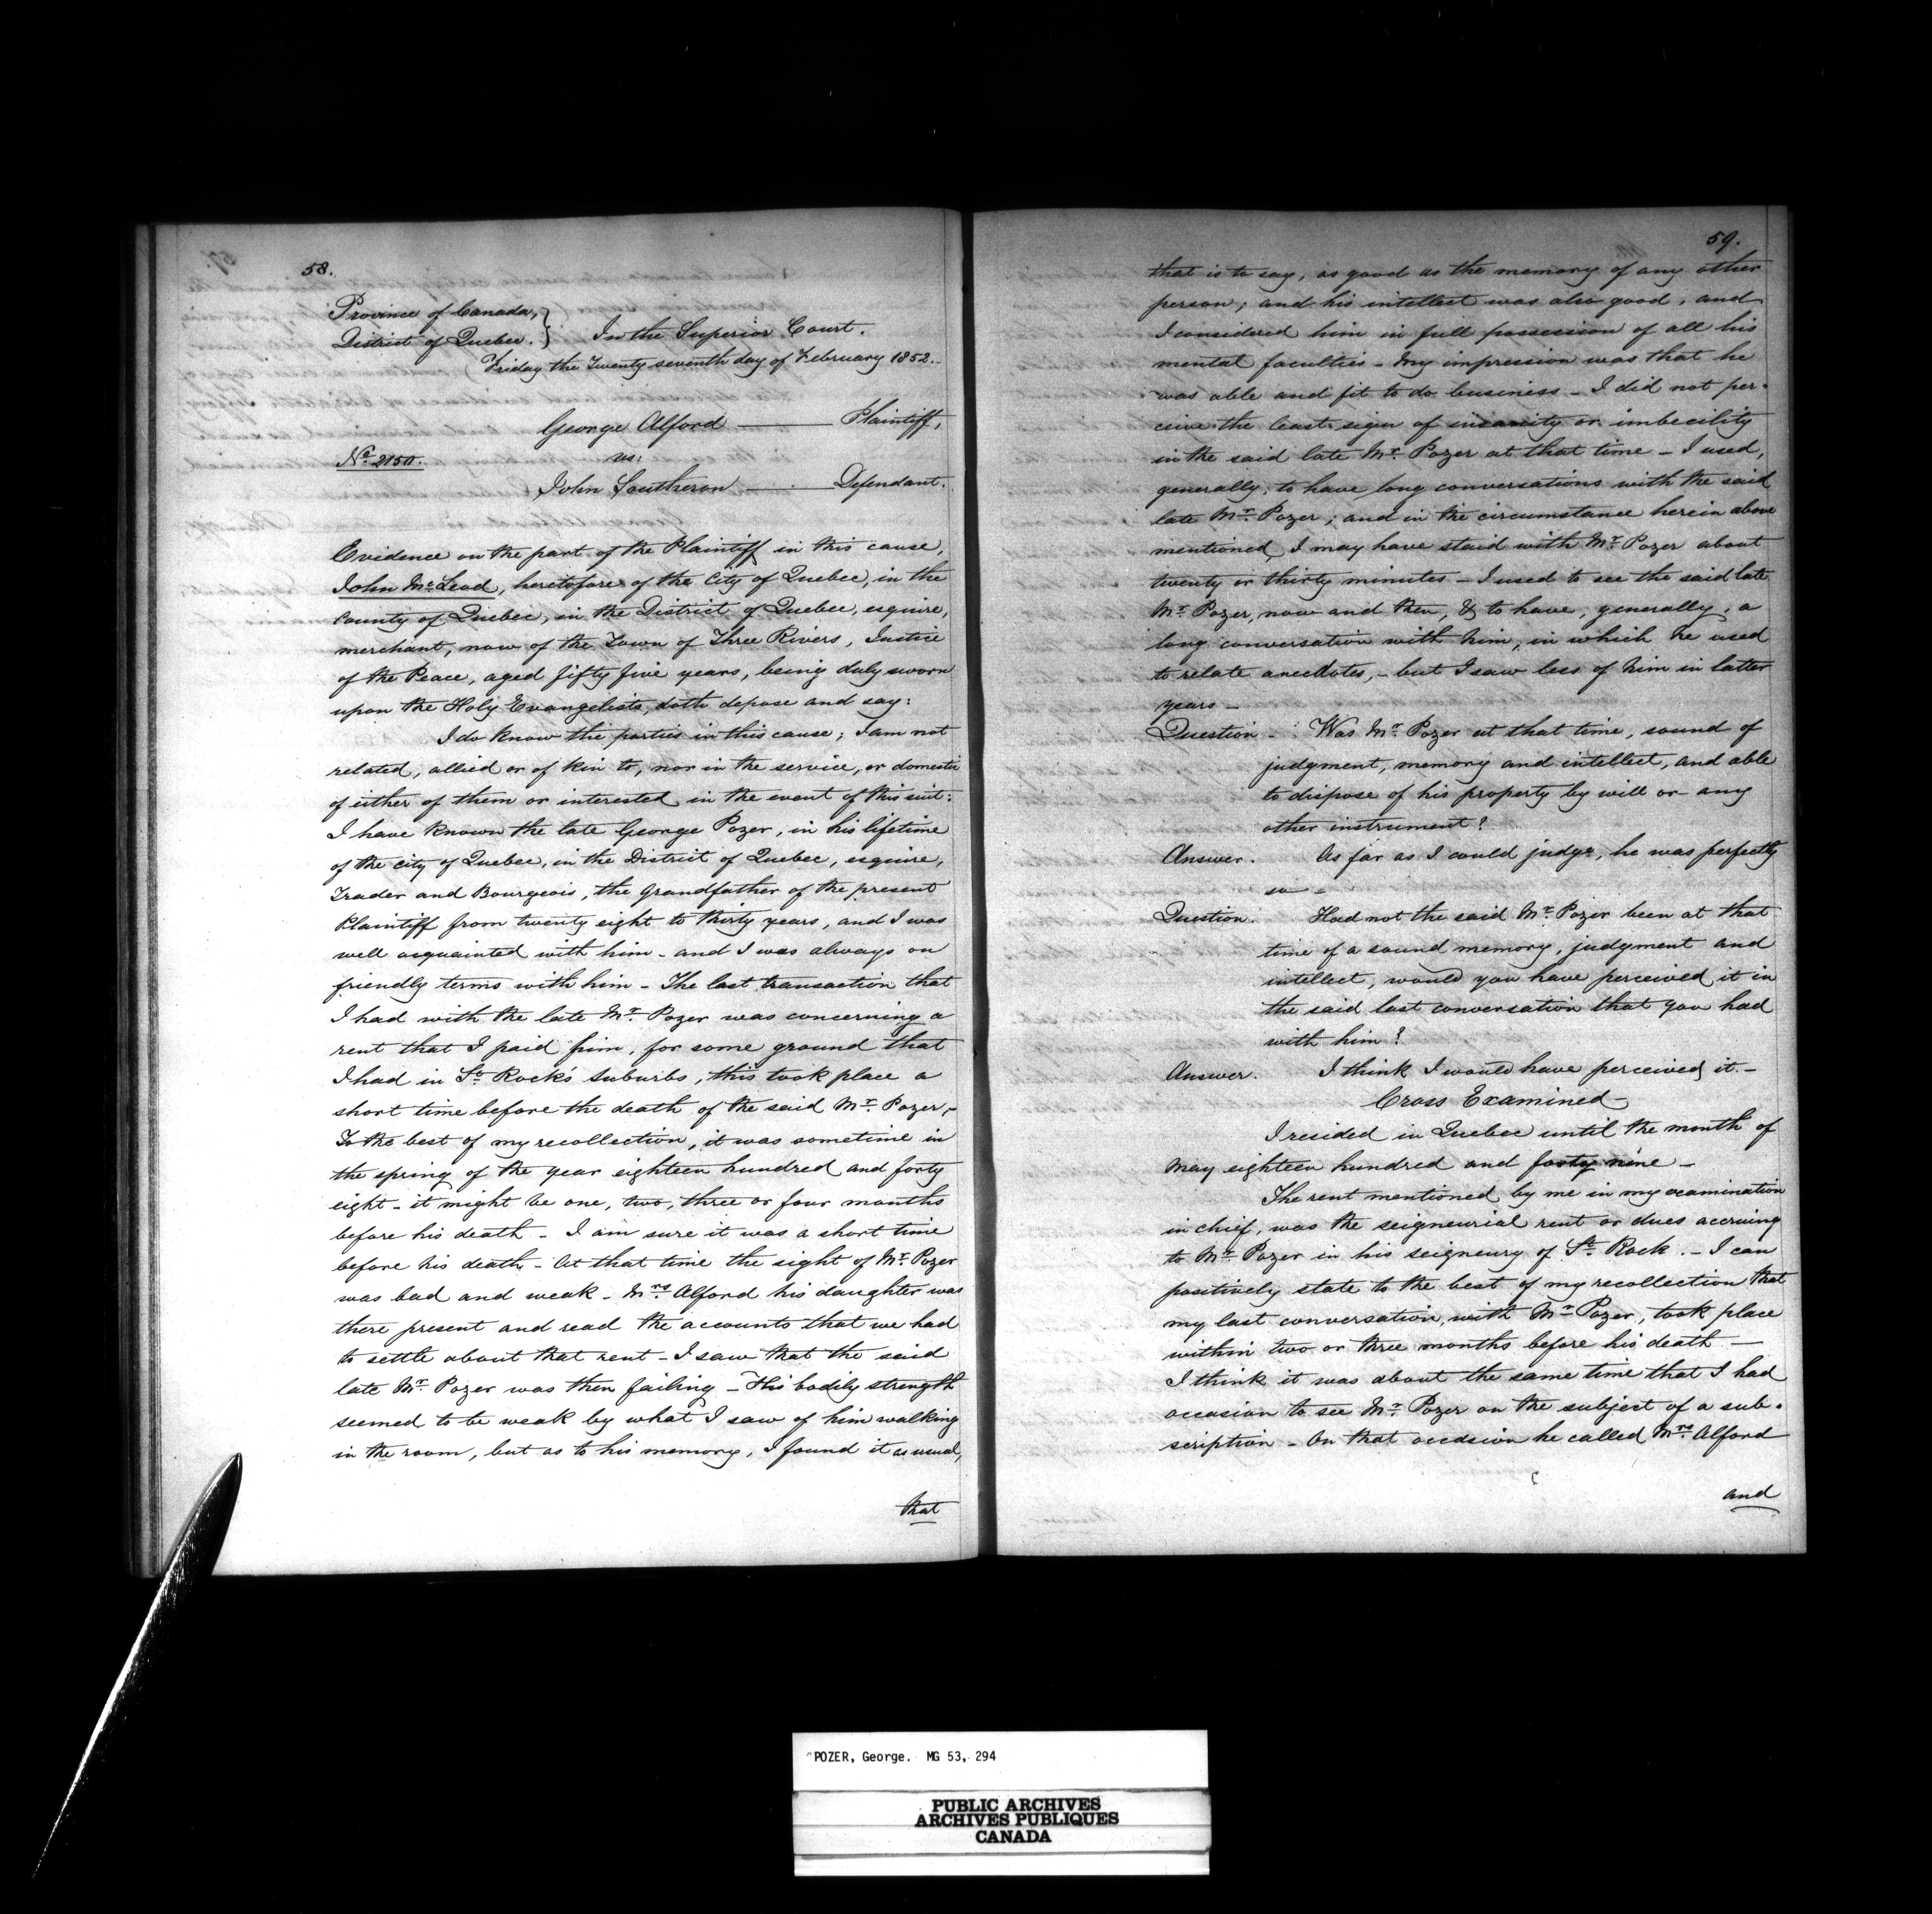 58.
Province of Canada,
District of Quebec. } In the Superior Court.
Friday the Twenty seventh day of February 1852.
George Alford — Plaintiff,
No. 2150. vs:
John Southeron — Defendant.
Evidence on the part of the Plaintiff in this cause,
John McLeod, heretofore of the City of Quebec, in the
County of Quebec, in the District of Quebec, esquire,
merchant, now of the Town of Three Rivers, Justice
of the Peace, aged fifty five years, being duly sworn
upon the Holy Evangelists, doth depose and say:
I do know the parties in this cause; I am not
related, allied or of kin to, nor in the service, or domestic
of either of them or interested in the event of this suit:
I have known the late George Pozer, in his lifetime
of the city of Quebec, in the District of Quebec, esquire,
Trader and Bourgeois, the Grandfather of the present
Plaintiff from twenty eight to thirty years, and I was
well acquainted with him - and I was always on
friendly terms with him - The last transaction that
I had with the late Mr. Pozer was concerning a
rent that I paid him, for some ground that
I had in St. Rock's suburbs, this took place a
short time before the death of the said Mr. Pozer,-
To the best of my recollection, it was sometime in
the spring of the year eighteen hundred and forty
eight - it might be one, two, three or four months
before his death - I am sure it was a short time
before his death - At that time the sight of Mr. Pozer
was bad and weak - Mrs. Alford his daughter was
there present and read the accounts that we had
to settle about that rent - I saw that the said
late Mr. Pozer was then failing - His bodily strength
seemed to be weak by what I saw of him walking
in the room, but as to his memory, I found it as usual,
that
59.
that is to say, as good as the memory of any other
person; and his intellect was also good, and
I considered him in full possession of all his
mental faculties - My impression was that he
was able and fit to do business - I did not per-
ceive the least sign of insanity or imbecility
in the said late Mr. Pozer at that time - I used,
generally, to have long conversations with the said
late Mr. Pozer; and in the circumstance herein above
mentioned, I may have staid with Mr. Pozer about
twenty or thirty minutes - I used to see the said late
Mr. Pozer, now and then, & to have, generally, a
long conversation with him, in which he used
to relate anecdotes, - but I saw less of him in latter
years -
Question - Was Mr. Pozer at that time, sound of
judgment, memory and intellect, and able
to dispose of his property by will or any
other instrument?
Answer. As far as I could judge, he was perfectly
so -
Question. Had not the said Mr. Pozer been at that
time of a sound memory, judgment and
intellect, would you have perceived it in
the said last conversation that you had
with him?
Answer. I think I would have perceived it. -
Cross Examined -
I resided in Quebec until the month of
May eighteen hundred and forty nine -
The rent mentioned by me in my examination
in chief, was the seigneurial rent or dues accruing
to Mr. Pozer in his seigneury of St. Rock. - I can
positively state to the best of my recollection that
my last conversation with Mr. Pozer, took place
within two or three months before his death -
I think it was about the same time that I had
occasion to see Mr. Pozer on the subject of a sub-
scription - On that occasion he called Mrs. Alford
and
POZER, George. MG 53, 294
PUBLIC ARCHIVES
ARCHIVES PUBLIQUES
CANADA